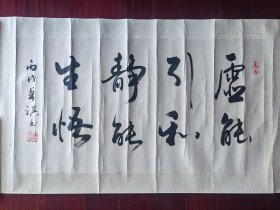 虚能
引和
静能
生悟
丙戌